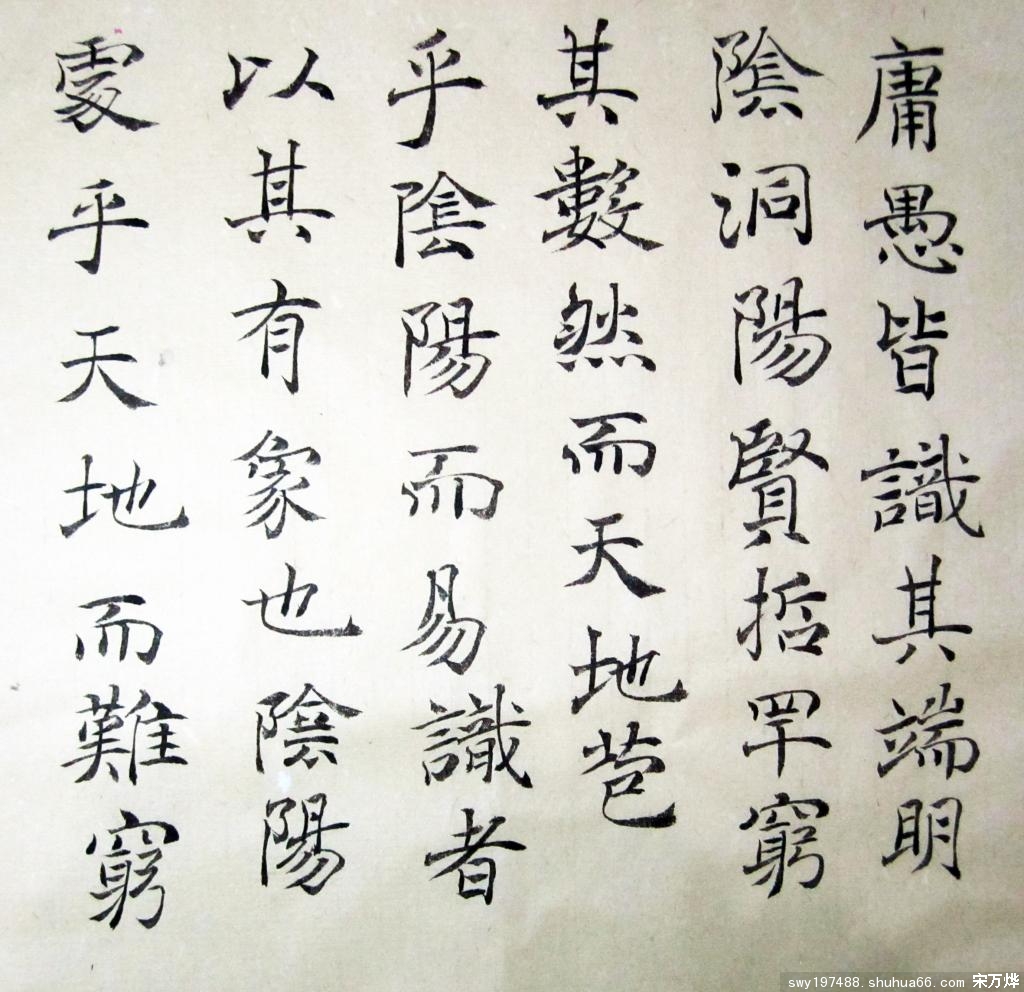 庸愚皆識其端明
陰洞陽賢哲罕窮
其數然而天地苞
乎陰陽而易識者
以其有象也陰陽
處乎天地而難窮
swy197488.shuhua66.com 宋万烨